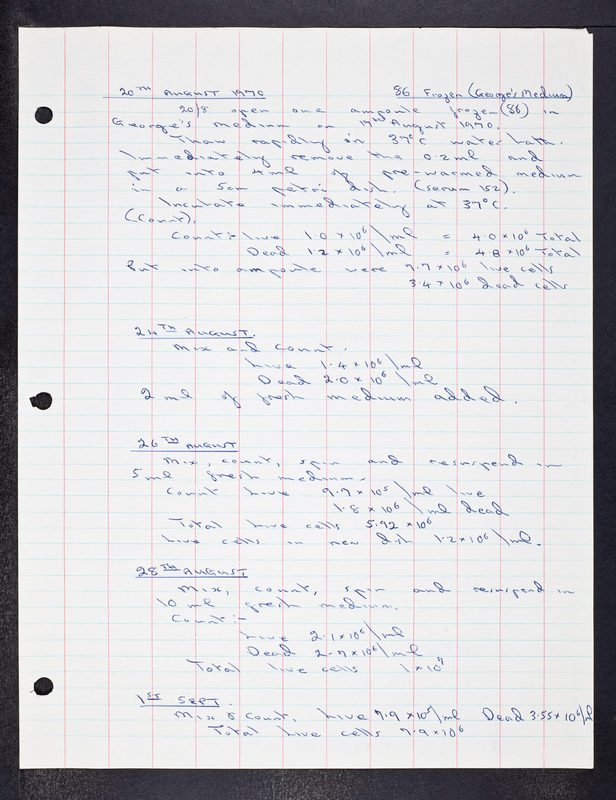 20TH AUGUST 1970 86 Frozen (George's Medium)
20/8 open one ampoule frozen (86) in
George's medium on 17th August 1970.
Thaw rapidly in 37°C water bath.
Immediately remove the 0.2ml and
put into 4ml of pre-warmed medium
in a 5cm petri dish. (serum 152).
Incubate immediately at 37°C.
(Count).
Count:- Live 1.0 x 10⁶/ml = 4.0 x 10⁶ Total
Dead 1.2 x 10⁶/ml = 4.8 x 10⁶ Total
Put into ampoule were 7.7 x 10⁶ live cells
3.4 x 10⁶ dead cells
24TH AUGUST.
Mix and Count.
Live 1.4 x 10⁶/ml
Dead 2.0 x 10⁶/ml
2 ml of fresh medium added.
26TH AUGUST
Mix, count, spin and resuspend in
5 ml fresh medium.
Count Live 9.7 x 10⁵/ml live
1.8 x 10⁶/ml dead
Total live cells 5.92 x 10⁶
Live cells in new dish 1.2 x 10⁶/ml.
28TH AUGUST
Mix, count, spin and resuspend in
10 ml fresh medium.
Count:-
Live 2.1 x 10⁶/ml
Dead 2.7 x 10⁶/ml
Total live cells 1 x 10⁷
1ST SEPT.
Mix & Count. Live 7.9 x 10⁵/ml Dead 3.55 x 10⁶/ml
Total live cells 7.9 x 10⁶